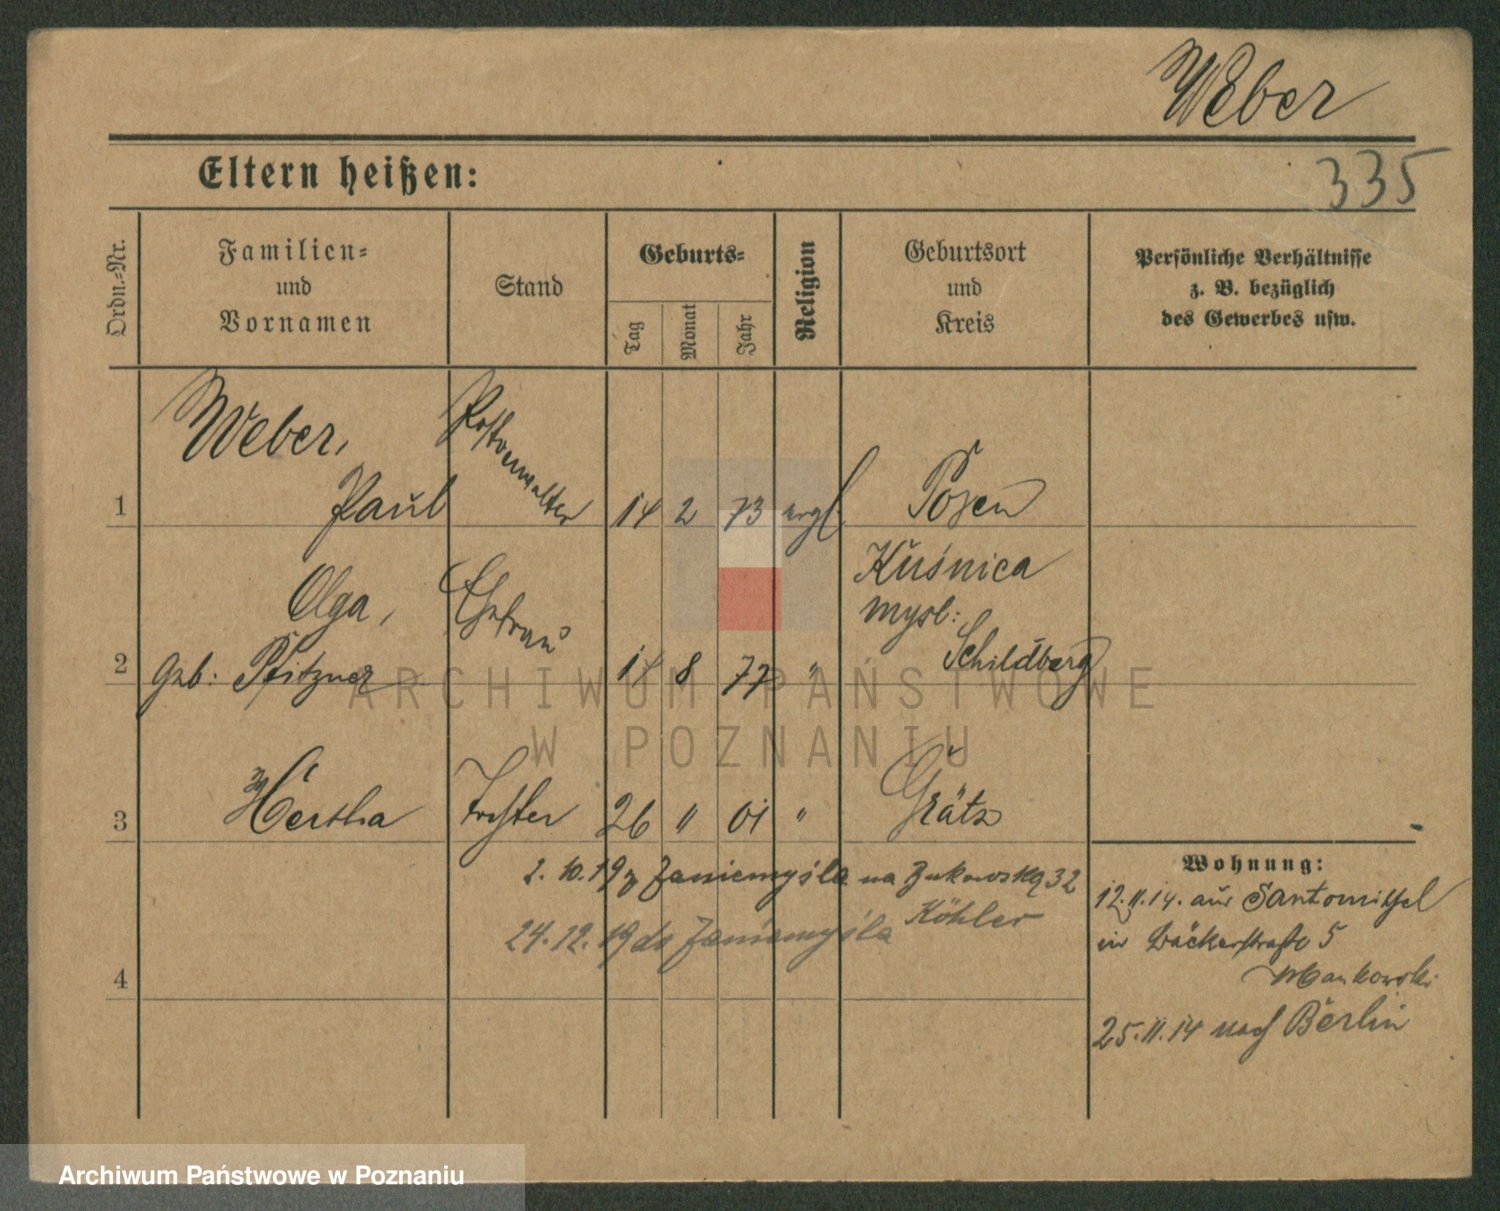 Weber
Eltern heißen:
335
Ordn.-Nr.
Familien-
und
Vornamen
Stand
Geburts-
Tag
Monat
Jahr
Religion
Geburtsort
und
Kreis
Persönliche Verhältnisse
z. B. bezüglich
des Gewerbes usw.
Weber,
Postverwalter
1 Paul 14 2 73 evgl Posen
Olga, Ehefrau Kuśnica
mysl:
2 geb: Pfitzner 14 8 77 " Schildberg
3 Hertha Tochter 26 " 01 " Grätz
2.10.19 z Zaniemyśla na Żukowską 32
Köhler
24.12.19 do Zaniemyśla
4
Wohnung:
12.11.14. aus Santomischel
in Bäckerstraße 5
Mankowski
25.11.14 nach Berlin
ARCHIWUM PAŃSTWOWE
W POZNANIU
Archiwum Państwowe w Poznaniu